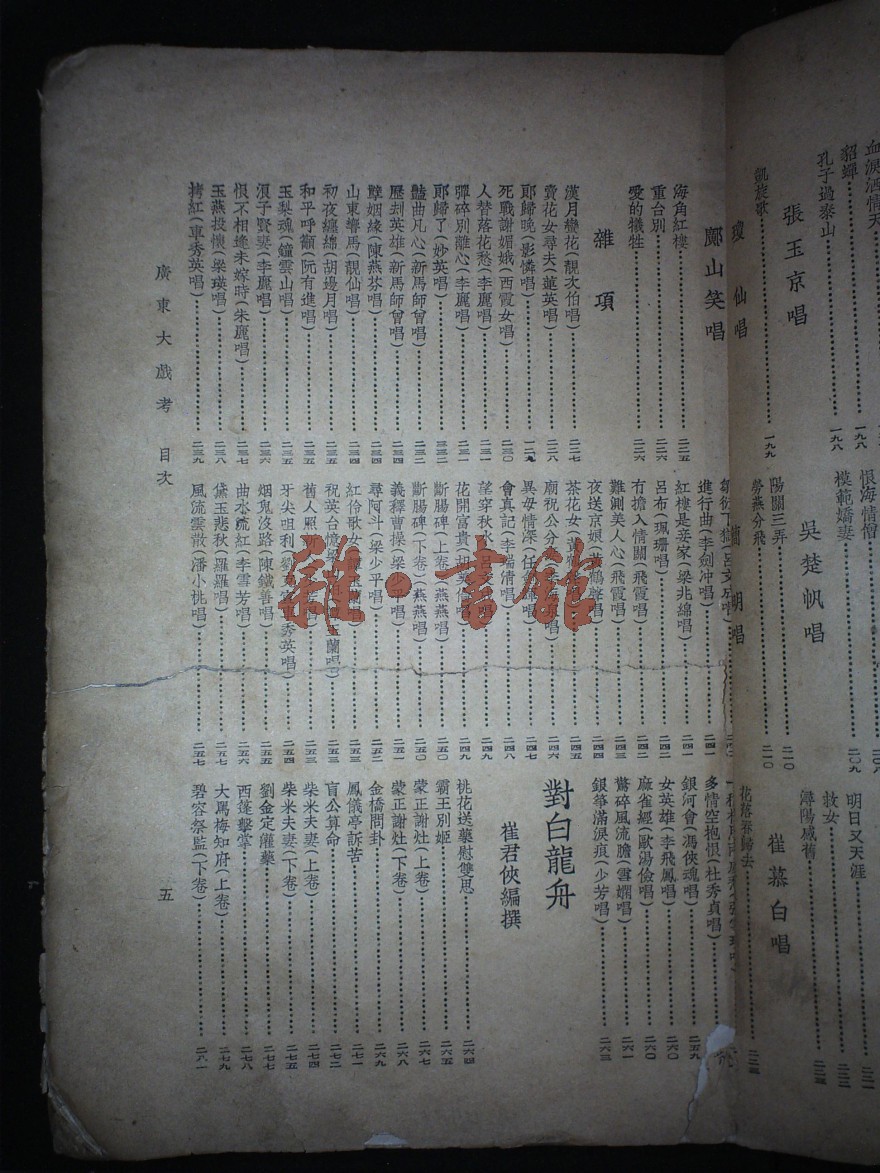 血淚洒情天
貂蟬……一九八
孔子過泰山……一九八
張玉京唱
凱旋歌……一九九
恨海情僧……二〇八
模範嬌妻……二〇九
吳楚帆唱
陽關三弄……二一〇
勞燕分飛……二一〇
明日又天涯……二二二
救女……二二二
潯陽感舊……二二三
崔慕白唱
花落春歸去……二二三
瓊仙唱
明唱
鄺山笑唱
海角紅樓……二二五
重台別……二二六
愛的犧牲……二二六
雜項
漢月蠻花(靚次伯唱)……二二七
賣花女尋夫(蓮英唱)……二二八
郎歸晚(影憐唱)……二二九
死戰謝媚娥(西霞女唱)……二三〇
人替落花愁(李麗唱)……二三一
彈碎別離心(李麗唱)……二三一
郎歸了(妙英唱)……二三二
豔曲凡心(新馬師曾唱)……二三二
歷刦英雄(新馬師曾唱)……二三三
孽姻緣(陳燕芬唱)……二三四
山東響馬(靚仙唱)……二三四
初夜纏綿(胡邊月唱)……二三四
和平呼籲(阮有進唱)……二三五
玉梨魂(鐘雲山唱)……二三五
浪子野妻(李麗唱)……二三六
恨不相逢未嫁時(朱麗唱)……二三七
玉燕投懷(梁瑛唱)……二三八
拷紅(車秀英唱)……二三九
進行曲(李劍冲唱)……二四一
紅樓是妾家(梁兆綿唱)……二四一
呂布(珮珊唱)……二四二
有擔入情關(飛霞唱)……二四二
難測美人心(飛霞唱)……二四三
夜送京娘……二四四
茶花女……二四五
廟祝公分……二四六
異母情深……二四七
會真記(李湍清唱)……二四八
望穿秋水……二四九
花開富貴……二四九
斷腸碑(上卷)(燕燕唱)……二五〇
斷腸碑(下卷)(燕燕唱)……二五〇
義釋曹操(梁少平唱)……二五一
尋阿斗(梁少平唱)……二五二
紅伶歌女……二五三
祝英台憶……二五三
舊人照……二五三
牙尖咀利……二五四
烟鬼沒路(陳鐵善唱)……二五五
曲水流紅(李雲芳唱)……二五六
黛玉悲秋(羅羅唱)……二五七
風流雲散(潘小桃唱)……二五七
多情空抱恨(杜秀貞唱)
銀河會(馮俠魂唱)……二五九
女英雄(李飛鳳唱)……二六〇
麻雀經(歐湯儉唱)……二六〇
驚碎風流膽(雪嫻唱)……二六一
銀箏滿淚痕(少芳唱)……二六三
對白龍舟
崔君俠編撰
桃花送藥慰雙思……二六四
霸王別姬……二六五
蒙正謝灶(上卷)……二六七
蒙正謝灶(下卷)……二六八
金橋問卦……二六九
鳳儀亭訴苦……二七一
盲公算命……二七二
柴米夫妻(上卷)……二七四
柴米夫妻(下卷)……二七五
劉金定灌藥……二七六
西篷擊掌……二七八
大罵梅知府(上卷)……二七九
碧容祭監(下卷)……二八一
廣東大戲考 目次
五
雜·書館